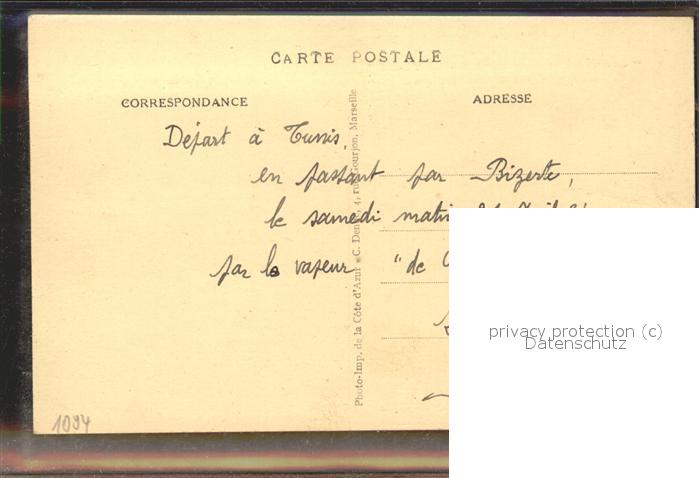 CARTE POSTALE
CORRESPONDANCE
ADRESSE
Départ à Tunis,
en passant par Bizerte,
le samedi matin
par le vapeur "de
Photo-Imp. de la Côte d'Azur - C. 4, rue Gourjon, Marseille
1094
privacy protection (c)
Datenschutz